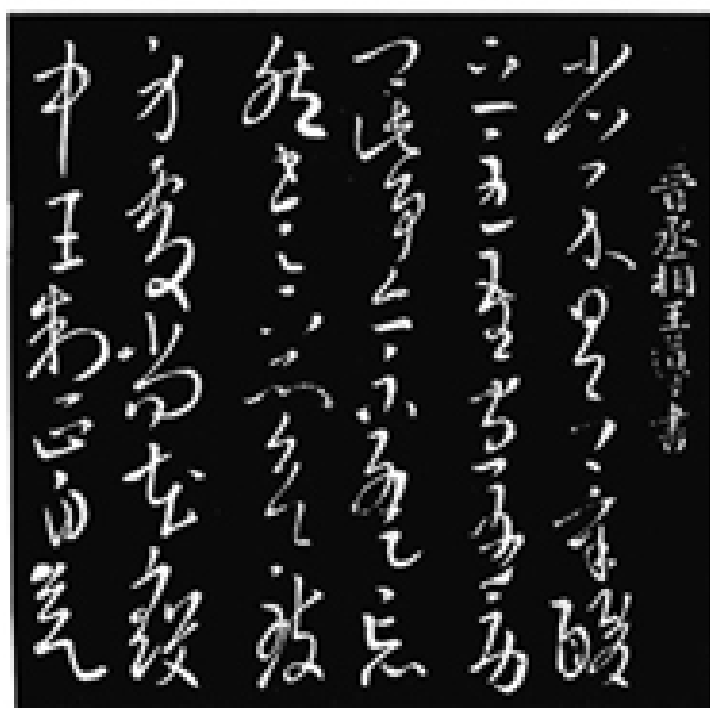 晉丞相王導書
省示具卿辛酸
之至吾守憂勞
卿此事亦不蹔忘
然書足下所欲致
身處尚在殿
中王制正自